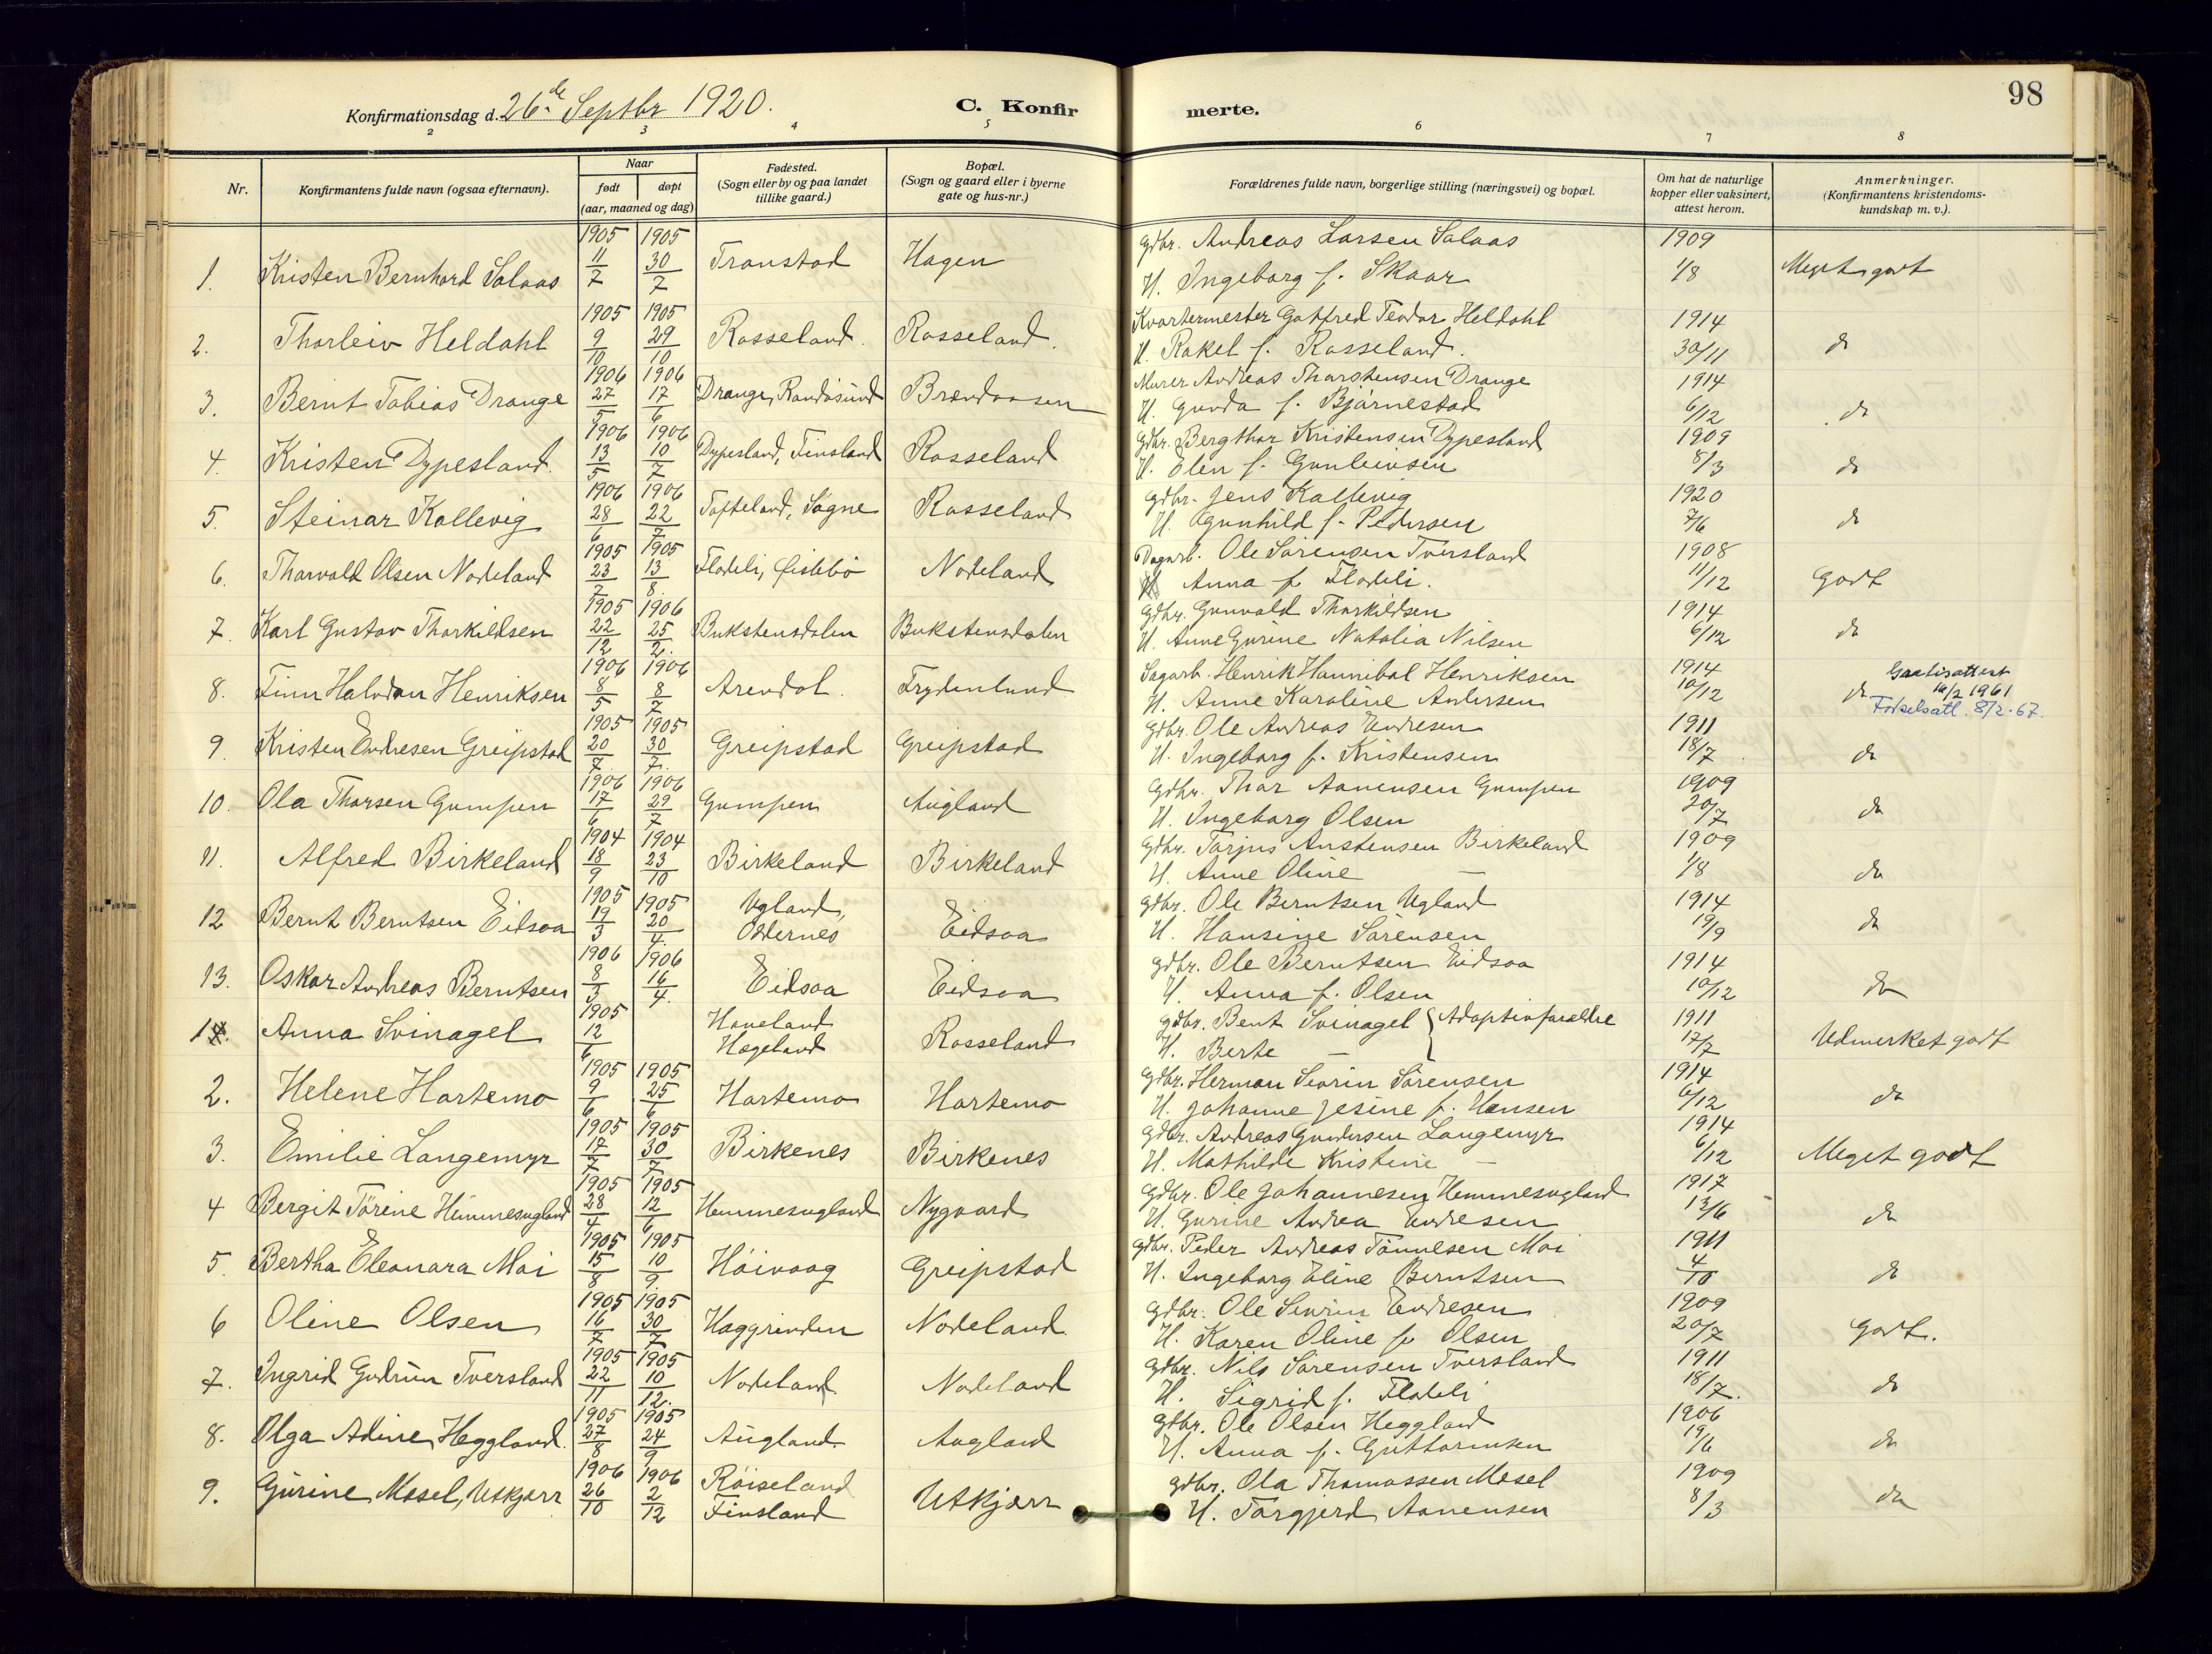 98
Konfirmationsdag d. 26de Septbr 1920.
C. Konfir
merte.
2 3 4 5 6 7 8
Nr.
Konfirmantens fulde navn (ogsaa efternavn).
Naar
født
døpt
(aar, maaned og dag)
Fødested.
(Sogn eller by og paa landet
tillike gaard.)
Bopæl.
(Sogn og gaard eller i byerne
gate og hus-nr.)
Forældrenes fulde navn, borgerlige stilling (næringsvei) og bopæl.
Om hat de naturlige
kopper eller vaksinert,
attest herom.
Anmerkninger.
(Konfirmantens kristendoms-
kundskap m. v.).
1. Kristen Bernhard Salaas 1905 11/7 1905 30/7 Transtad Hagen gdbr. Andreas Larsen Salaas 1909
H. Ingeborg f. Skaar 1/8 Meget godt
2. Thorleiv Heldahl 1905 9/10 1905 29/10 Rosseland. Rosseland. Kvartermester Gotfred Teodor Heldahl 1914
H. Rakel f. Rosseland. 30/11 do
3. Bernt Tobias Drange 1906 27/5 1906 17/6 Drange, Randøsund Brendaasen Murer Andreas Tharstensen Drange 1914
H. Gunda f. Bjørnestad 6/12 do
4. Kristen Dypesland. 1906 13/5 1906 10/7 Dypesland, Finsland Rosseland gdbr. Bergthor Kristensen Dypesland 1909
H. Elen f. Gunleivsen 8/3 do
5. Steinar Kallevig 1906 28/6 1906 22/7 Tofteland, Søgne Rosseland gdbr. Jens Kallevig 1920
H. Gunhild f. Pedersen 7/6 do
6. Tharvald Olsen Nodeland 1905 23/7 1905 13/8. Flodeli, Øislebø Nodeland Dagarb. Ole Sørensen Tversland 1908
H Anna f. Flodeli. 11/12 Godt
7. Karl Gustav Thorkildsen 1905 22/12 1906 25/2. Bukstensdalen Bukstensdalen gdbr. Gunvald Thorkildsen 1914
H. Anne Gurine Natalia Nilsen 6/12 do
8. Finn Halvdan Henriksen 1906 8/5 1906 8/7 Arendal. Frydenlund Sagarb. Henrik Hannibal Henriksen 1914
H. Anne Karoline Andersen 10/12 do
16/2 1961
Fødselsatt. 8/2.67.
9. Kristen Endresen Greipstad 1905 20/7 1905 30/7. Greipstad Greipstad gdbr. Ole Andreas Endresen 1911
H. Ingeborg f. Kristensen 18/7 do
10. Ola Thorsen Gumpen 1906 17/6 1906 29/7 Gumpen Augland gdbr. Thor Aanensen Gumpen 1909
H. Ingeborg Olsen 20/7 do
11. Alfred Birkeland 1904 18/9 1904 23/10 Birkeland Birkeland gdbr. Tarjus Anstensen Birkeland 1909
H. Anne Oline — 1/8 do
12 Bernt Berntsen Eidsaa 1905 19/3 1905 20/4. Ugland, Oddernes Eidsaa gdbr. Ole Berntsen Ugland 1914
H. Hansine Sørensen 19/9 do
13. Oskar Andreas Berntsen 1906 8/3 1906 16/4. Eidsaa Eidsaa gdbr. Ole Berntsen Eidsaa 1914
H. Anna f. Olsen 10/12 do
1. Anna Svinagel 1905 12/6 Haveland Hægeland Rosseland gdbr. Bent Svinagel } Adoptivforældre 1911
H. Berte — 17/7 Udmerket godt
2. Helene Hortemo 1905 9/6 1905 25/6 Hortemo Hortemo gdbr. Herman Severin Sørensen 1914
H. Johanne Jesine f. Hansen 6/12 do
3. Emilie Langemyr 1905 17/7 1905 30/7 Birkenes Birkenes gdbr. Andreas Gundersen Langemyr 1914
H. Mathilde Kristine — 6/12 Meget godt
4 Bergit Tørine Hemmesugland 1905 28/4 1905 12/6 Hemmesugland Nygaard gdbr. Ole Johannesen Hemmesugland 1917
H. Gurine Andrea Endresen 13/6 do
5. Bertha Eleonara Moi 1905 15/8 1905 10/9. Høivaag Greipstad gdbr. Peder Andreas Tønnesen Moi 1911
H. Ingeborg Eline Berntsen 4/10 do
6 Oline Olsen 1905 16/7 1905 30/7 Haggrinden Nodeland. gdbr. Ole Severin Endresen 1909
H. Karen Oline f. Olsen 20/7 Godt.
7. Ingrid Gudrun Tversland 1905 22/11 1905 10/12. Nodeland Nodeland gdbr. Nils Sørensen Tversland 1911
H. Sigrid f. Flodeli 18/7. do
8. Olga Adine Heggland. 1905 27/8 1905 24/9 Augland. Augland gdbr. Ole Olsen Heggland 1906
H. Anna f. Guttormsen 19/6 do
9. Gurine Mosel, Utkjærr 1906 26/10 1906 2/12 Røiseland Finsland Utkjærr gdbr. Ola Thomassen Mosel 1909
H. Torgjerd Aanensen 8/3 do